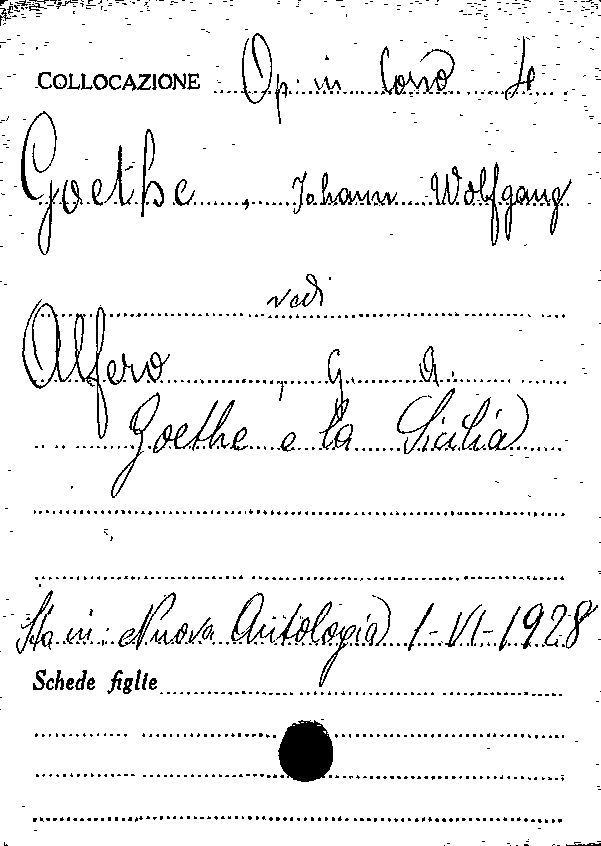 COLLOCAZIONE Op. in Corso 40
Goethe, Johann Wolfgang
vedi
Alfero, G. A.
Goethe e la Sicilia
Sta in: Nuova Antologia 1-VI-1928
Schede figlie